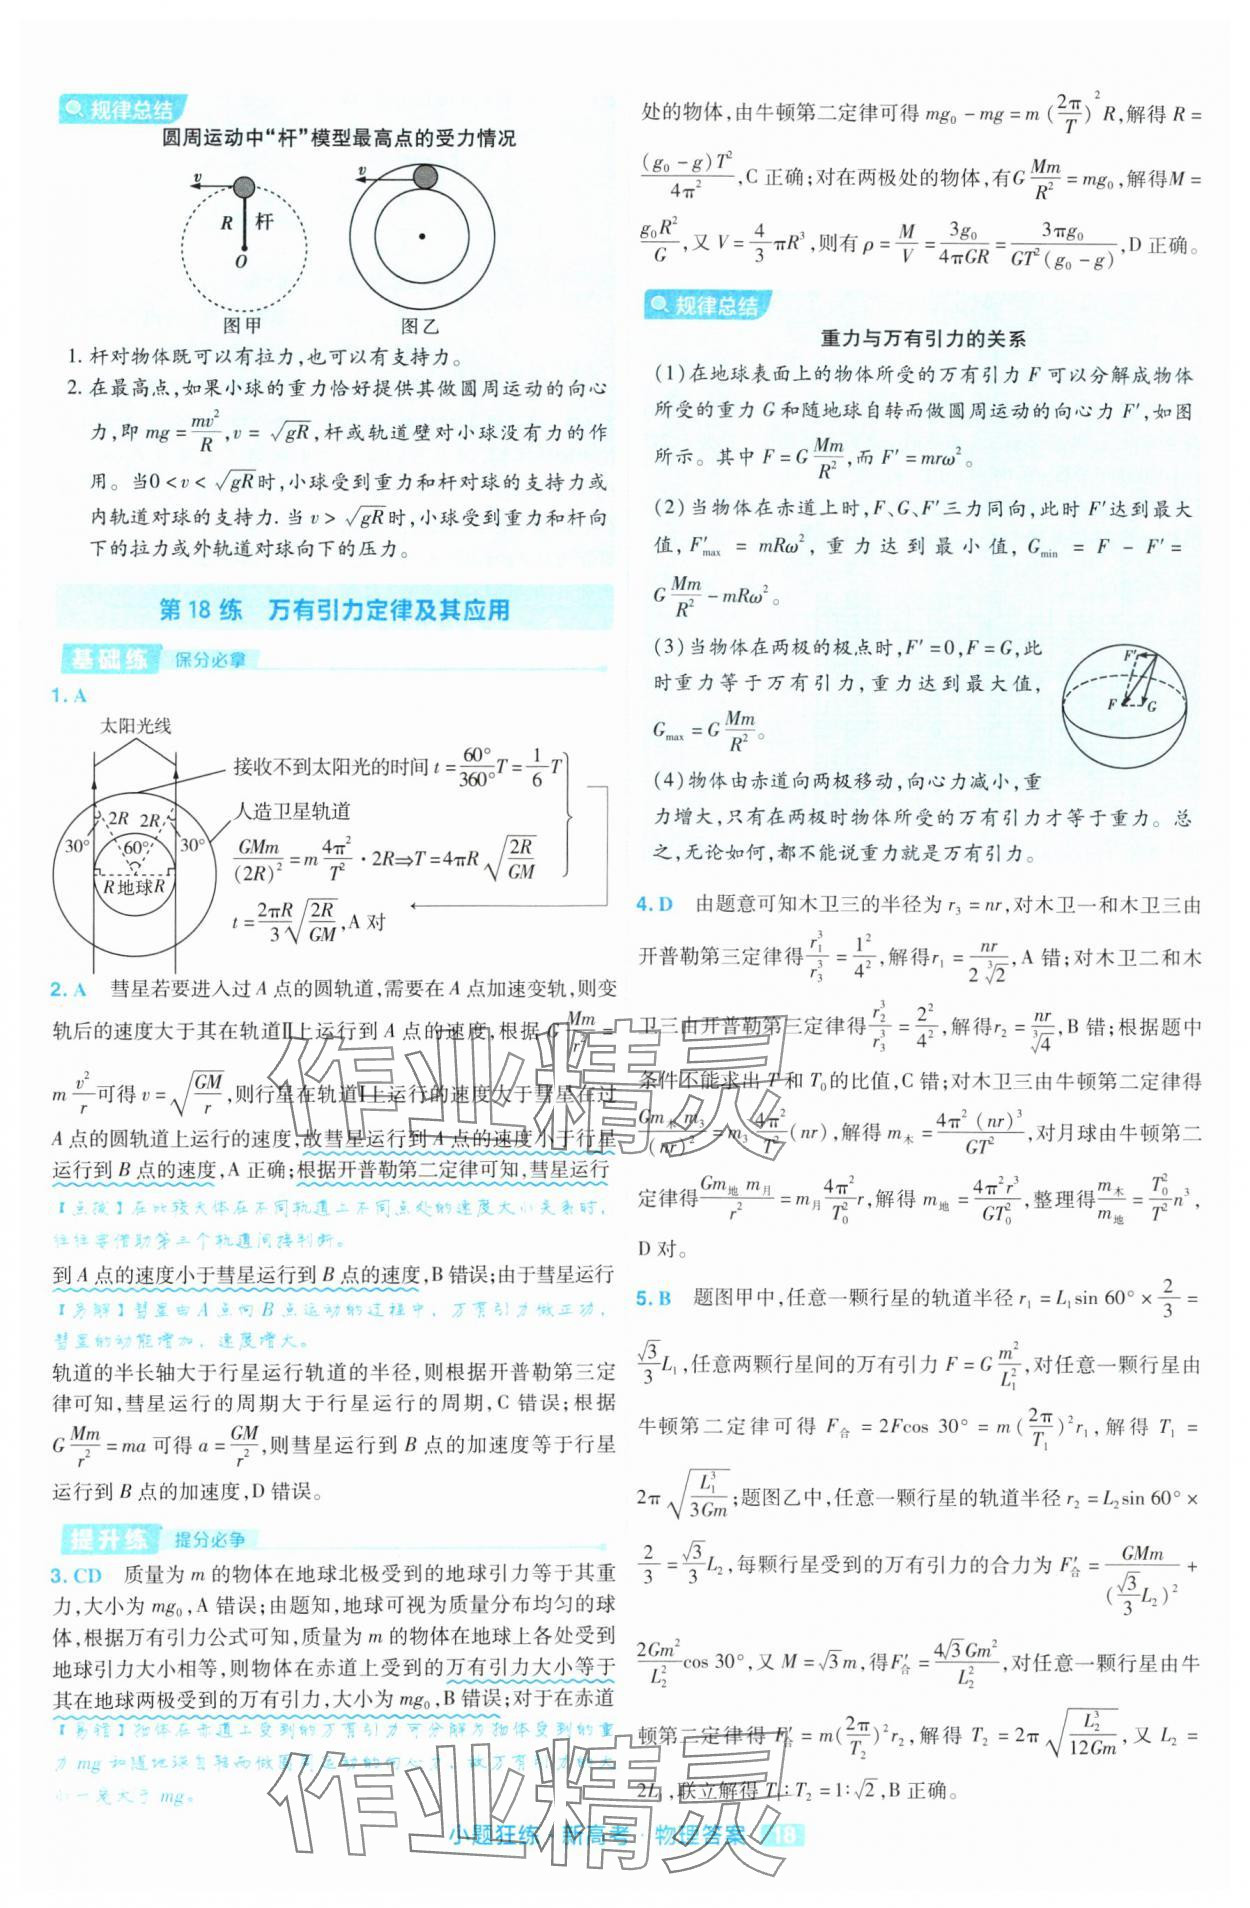 规律总结
圆周运动中“杆”模型最高点的受力情况
v
R 杆
O
图甲
v
图乙
1. 杆对物体既可以有拉力,也可以有支持力。
2. 在最高点,如果小球的重力恰好提供其做圆周运动的向心
力,即 mg = mv²/R, v = √(gR),杆或轨道壁对小球没有力的作
用。当0 < v < √(gR)时,小球受到重力和杆对球的支持力或
内轨道对球的支持力. 当 v > √(gR)时,小球受到重力和杆向
下的拉力或外轨道对球向下的压力。
第 18 练 万有引力定律及其应用
基础练 保分必拿
1. A
太阳光线
接收不到太阳光的时间 t = 60°/360° T = 1/6 T
人造卫星轨道
2R 2R
30° 60° 30°
R 地球 R
GMm/(2R)² = m 4π²/T² · 2R ⇒ T = 4πR √(2R/GM)
t = 2πR/3 √(2R/GM), A 对
2. A 彗星若要进入过 A 点的圆轨道,需要在 A 点加速变轨,则变
轨后的速度大于其在轨道Ⅱ上运行到 A 点的速度,根据 G Mm/r² =
m v²/r 可得 v = √(GM/r),则行星在轨道Ⅰ上运行的速度大于彗星在过
A 点的圆轨道上运行的速度,故彗星运行到 A 点的速度小于行星
运行到 B 点的速度,A 正确;根据开普勒第二定律可知,彗星运行
【点拨】在比较天体在不同轨道上不同点处的速度大小关系时,
往往要借助第三个轨道间接判断。
到 A 点的速度小于彗星运行到 B 点的速度,B 错误;由于彗星运行
【另解】彗星由 A 点向 B 点运动的过程中, 万有引力做正功,
彗星的动能增加, 速度增大。
轨道的半长轴大于行星运行轨道的半径,则根据开普勒第三定
律可知,彗星运行的周期大于行星运行的周期,C 错误;根据
G Mm/r² = ma 可得 a = GM/r²,则彗星运行到 B 点的加速度等于行星
运行到 B 点的加速度,D 错误。
提升练 提分必争
3. CD 质量为 m 的物体在地球北极受到的地球引力等于其重
力,大小为 mg₀,A 错误;由题知,地球可视为质量分布均匀的球
体,根据万有引力公式可知,质量为 m 的物体在地球上各处受到
地球引力大小相等,则物体在赤道上受到的万有引力大小等于
其在地球两极受到的万有引力,大小为 mg₀,B 错误;对于在赤道
【易错】物体在赤道上受到的万有引力可分解为物体受到的重
力 mg 和随地球自转而做圆周运动的向心力, 故万有引力的大
小一定大于 mg。
处的物体,由牛顿第二定律可得 mg₀ - mg = m (2π/T)² R,解得 R =
(g₀ - g)T²/4π²,C 正确;对在两极处的物体,有G Mm/R² = mg₀,解得M =
g₀R²/G,又 V = 4/3 πR³,则有 ρ = M/V = 3g₀/4πGR = 3πg₀/GT²(g₀ - g),D 正确。
规律总结
重力与万有引力的关系
(1)在地球表面上的物体所受的万有引力 F 可以分解成物体
所受的重力 G 和随地球自转而做圆周运动的向心力 F′,如图
所示。其中 F = G Mm/R²,而 F′ = mrω²。
(2)当物体在赤道上时,F、G、F′三力同向,此时 F′达到最大
值, F′max = mRω², 重力达到最小值, Gmin = F - F′ =
G Mm/R² - mRω²。
(3)当物体在两极的极点时,F′ = 0,F = G,此
时重力等于万有引力,重力达到最大值,
Gmax = G Mm/R²。
F′
F G
(4)物体由赤道向两极移动,向心力减小,重
力增大,只有在两极时物体所受的万有引力才等于重力。总
之,无论如何,都不能说重力就是万有引力。
4. D 由题意可知木卫三的半径为 r₃ = nr,对木卫一和木卫三由
开普勒第三定律得 r₁³/r₃³ = 1²/4²,解得r₁ = nr/(2∛2),A 错;对木卫二和木
卫三由开普勒第三定律得 r₂³/r₃³ = 2²/4²,解得r₂ = nr/∛4,B 错;根据题中
条件不能求出 T 和 T₀的比值,C 错;对木卫三由牛顿第二定律得
Gm木m₃/(nr)² = m₃ 4π²/T² (nr),解得 m木 = 4π²(nr)³/GT²,对月球由牛顿第二
定律得 Gm地m月/r² = m月 4π²/T₀² r,解得 m地 = 4π²r³/GT₀²,整理得 m木/m地 = T₀²/T² n³,
D 对。
5. B 题图甲中,任意一颗行星的轨道半径 r₁ = L₁sin 60° × 2/3 =
√3/3 L₁,任意两颗行星间的万有引力 F = G m²/L₁²,对任意一颗行星由
牛顿第二定律可得 F合 = 2Fcos 30° = m (2π/T₁)² r₁,解得 T₁ =
2π √(L₁³/3Gm);题图乙中,任意一颗行星的轨道半径 r₂ = L₂sin 60° ×
2/3 = √3/3 L₂,每颗行星受到的万有引力的合力为 F′合 = GMm/(√3/3 L₂)² +
2Gm²/L₂² cos 30°,又 M = √3 m,得F′合 = 4√3Gm²/L₂²,对任意一颗行星由牛
顿第二定律得 F′合 = m (2π/T₂)² r₂,解得 T₂ = 2π √(L₂³/12Gm),又 L₂ =
2L₁,联立解得 T₁∶T₂ = 1∶√2,B 正确。
小题狂练·新高考·物理答案 18
作业精灵
作业精灵